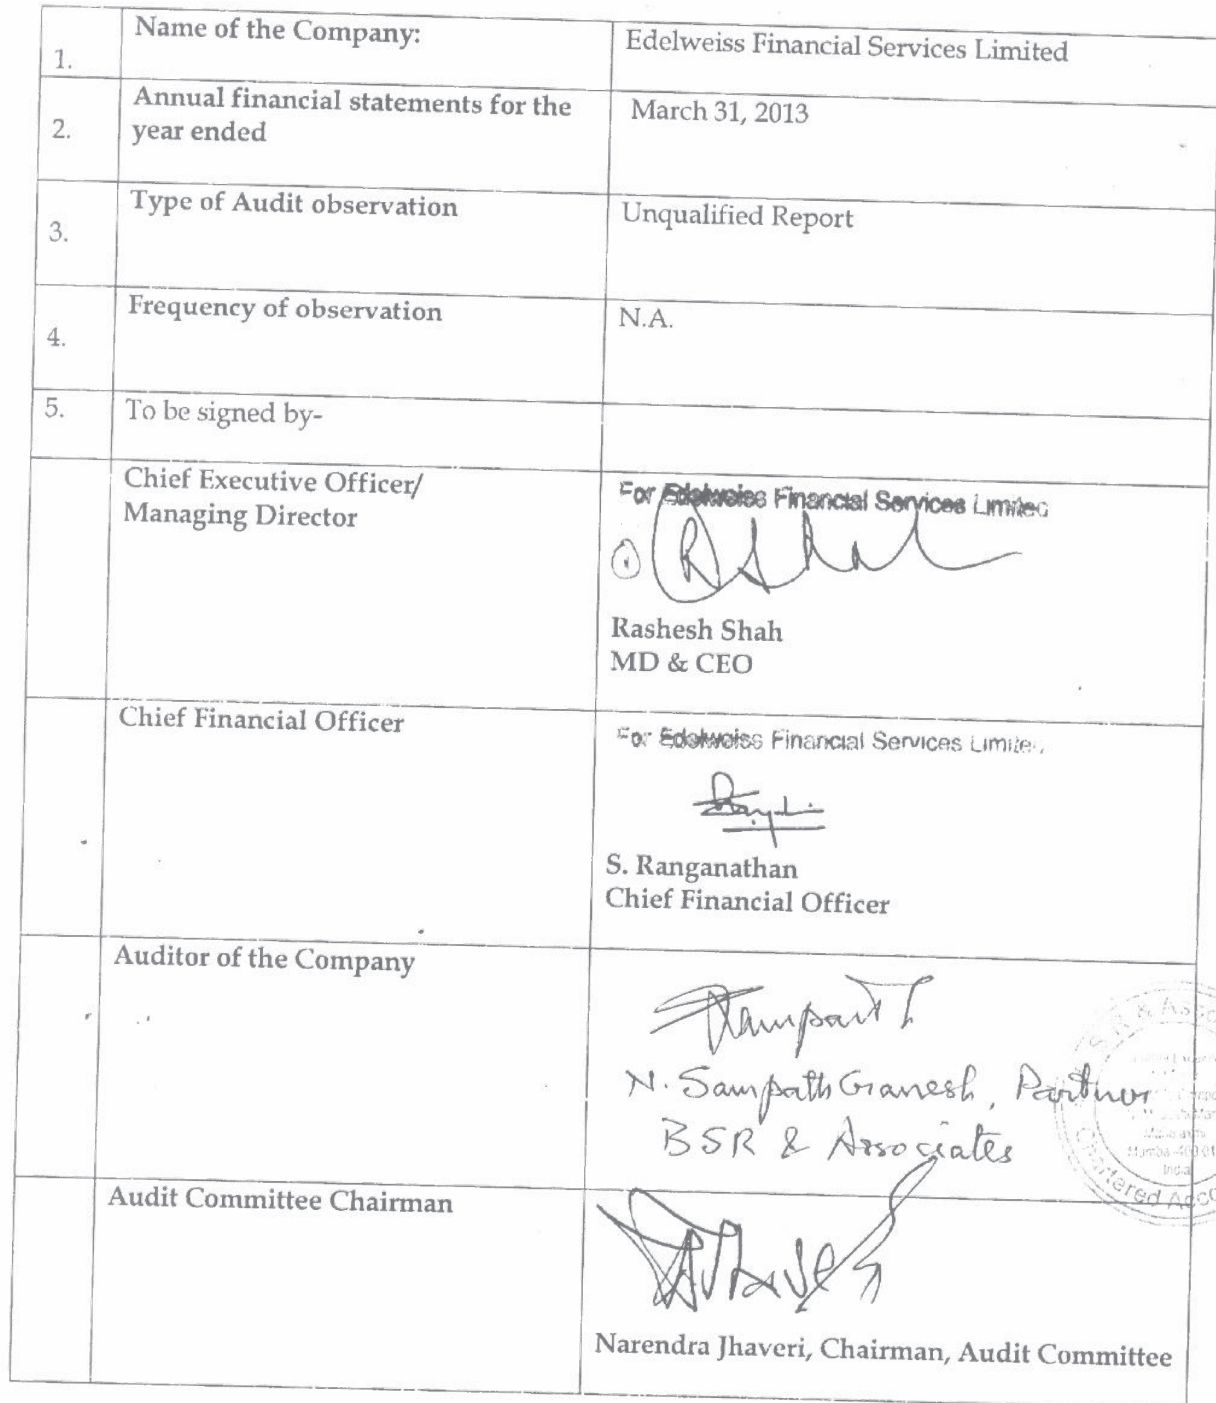 Name of the Company:
Edelweiss Financial Services Limited
1.
Annual financial statements for the
year ended
March 31, 2013
2.
Type of Audit observation
Unqualified Report
3.
Frequency of observation
N.A.
4.
5.
To be signed by-
Chief Executive Officer/
Managing Director
For Edelweiss Financial Services Limited
R Shah
Rashesh Shah
MD & CEO
Chief Financial Officer
For Edelweiss Financial Services Limited
S. Ranganathan
Chief Financial Officer
Auditor of the Company
N. Sampath Ganesh, Partner
BSR & Associates
Chartered Acco
India
Audit Committee Chairman
Narendra Jhaveri, Chairman, Audit Committee